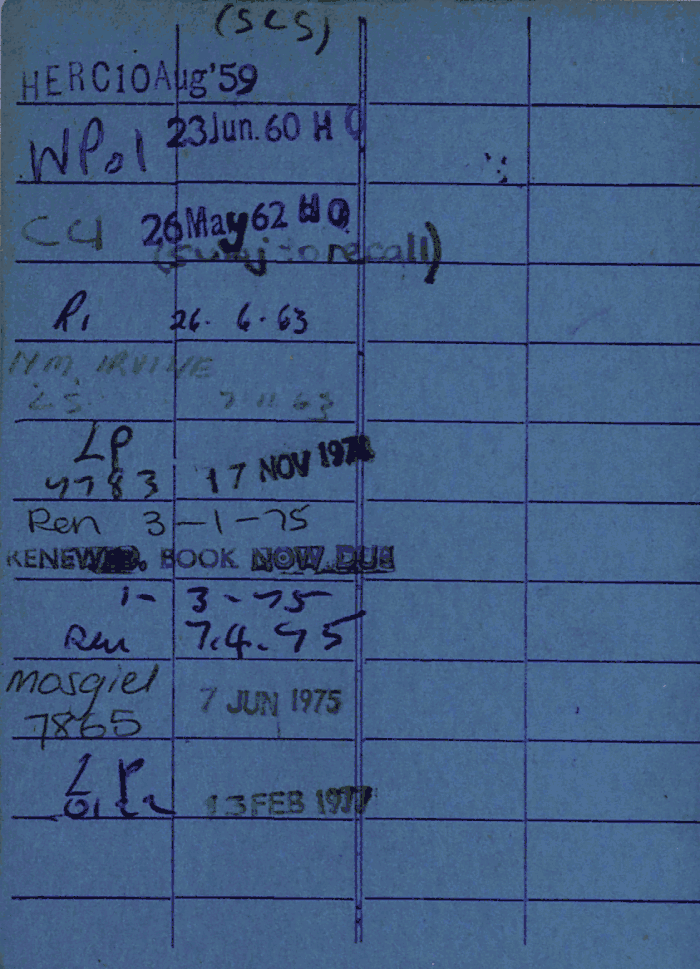 (SCS)
HERC 10 Aug '59
WP.1 23 Jun. 60 H Q
CCI 26 May 62 H Q
(subj to recall)
P1 26. 6. 63
N.M. IRVINE
7 11 63
LP
4783 17 NOV 1974
Ren 3-1-75
RENEWED. BOOK NOW DUE
1-3-75
Ren 7.4.75
Mosgiel
7865 7 JUN 1975
LP
13 FEB 1977